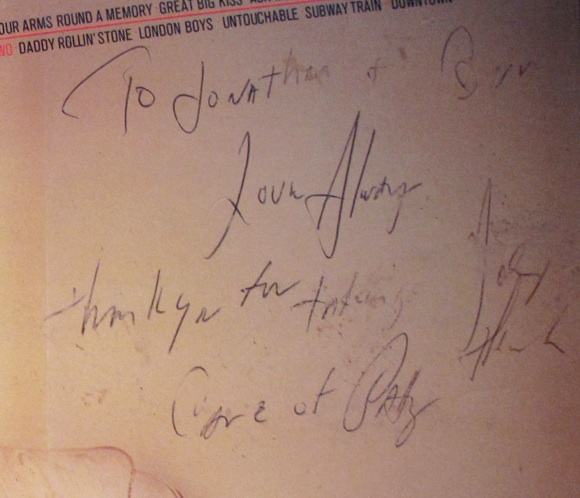 OUR ARMS ROUND A MEMORY GREAT BIG KISS
WO DADDY ROLLIN' STONE LONDON BOYS UNTOUCHABLE SUBWAY TRAIN DOWNTOWN
To Jonathan +
Love Always
thank you for taking
Care of Patty
Johnny